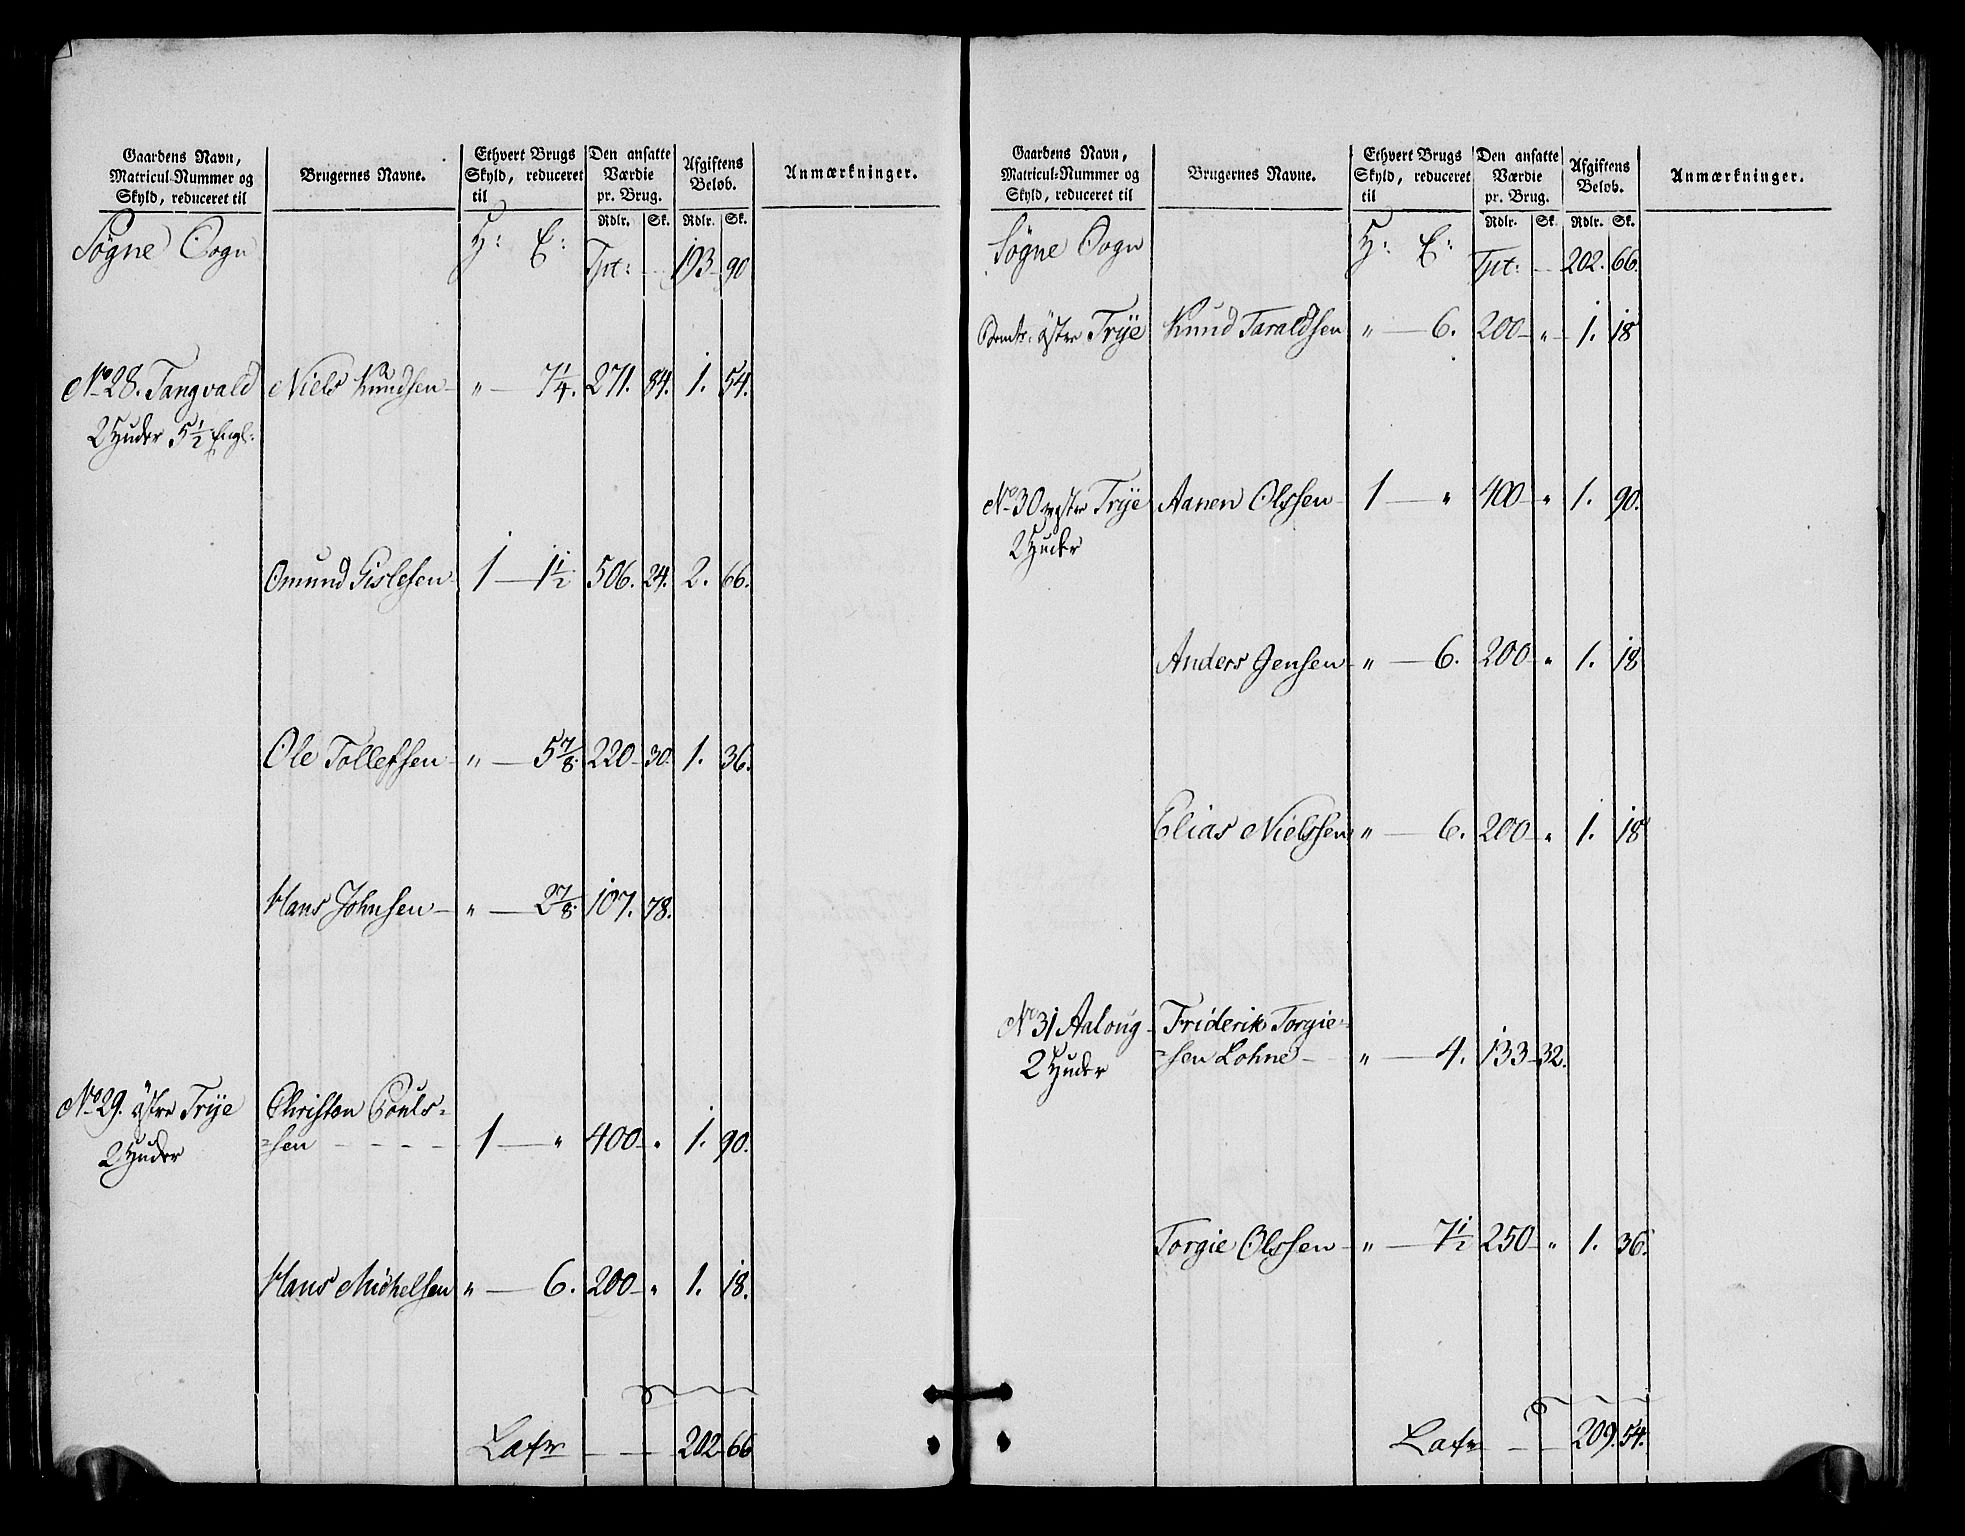 Gaardens Navn, Matricul-Nummer og Skyld, reduceret til | Brugernes Navne. | Ethvert Brugs Skyld, reduceret til | Den ansatte Værdie pr. Brug. | Afgiftens Beløb. | Anmærkninger.
Rdlr. Sk. Rdlr. Sk.
Søgne Sogn H: E: Tpt: — 193 — 90
No 28. Tangvald Niels Knudsen — " — 7 1/4. 271. 84. 1. 54.
2 Huder 5 1/2 Engl:
Omund Gislesen 1 — 1 1/2 506. 24. 2. 66.
Ole Tollefsen — " — 5 7/8. 220 — 30. 1. 36.
Hans Johnsen — " — 2 7/8. 107. 78.
No 29. östre Trye Christen Pouls=
2 Huder =sen - - - - 1 — " 400 — " 1. 90.
Hans Michelsen " — 6. 200 — " 1. 18.
Lat — — 202 — 66
Gaardens Navn, Matricul-Nummer og Skyld, reduceret til | Brugernes Navne. | Ethvert Brugs Skyld, reduceret til | Den ansatte Værdie pr. Brug. | Afgiftens Beløb. | Anmærkninger.
Rdlr. Sk. Rdlr. Sk.
Søgne Sogn H: E: Tpt: — 202. 66.
östre Trye Knud Taraldsen " — 6. 200 — " — 1. 18
No 30 westre Trye Aanen Olssen — 1 — " 400 — " 1. 90.
2 Huder
Anders Jensen — " — 6. 200 — " 1. 18
Elias Nielssen " — 6. 200 — " 1. 18
No 31 Aaloug — Friderik Torgie=
2 Huder =sen Lohne — " — 4. 133 — 32.
Torgie Olssen — " — 7 1/2 250 — " 1. 36.
Lat — — 209. 54.